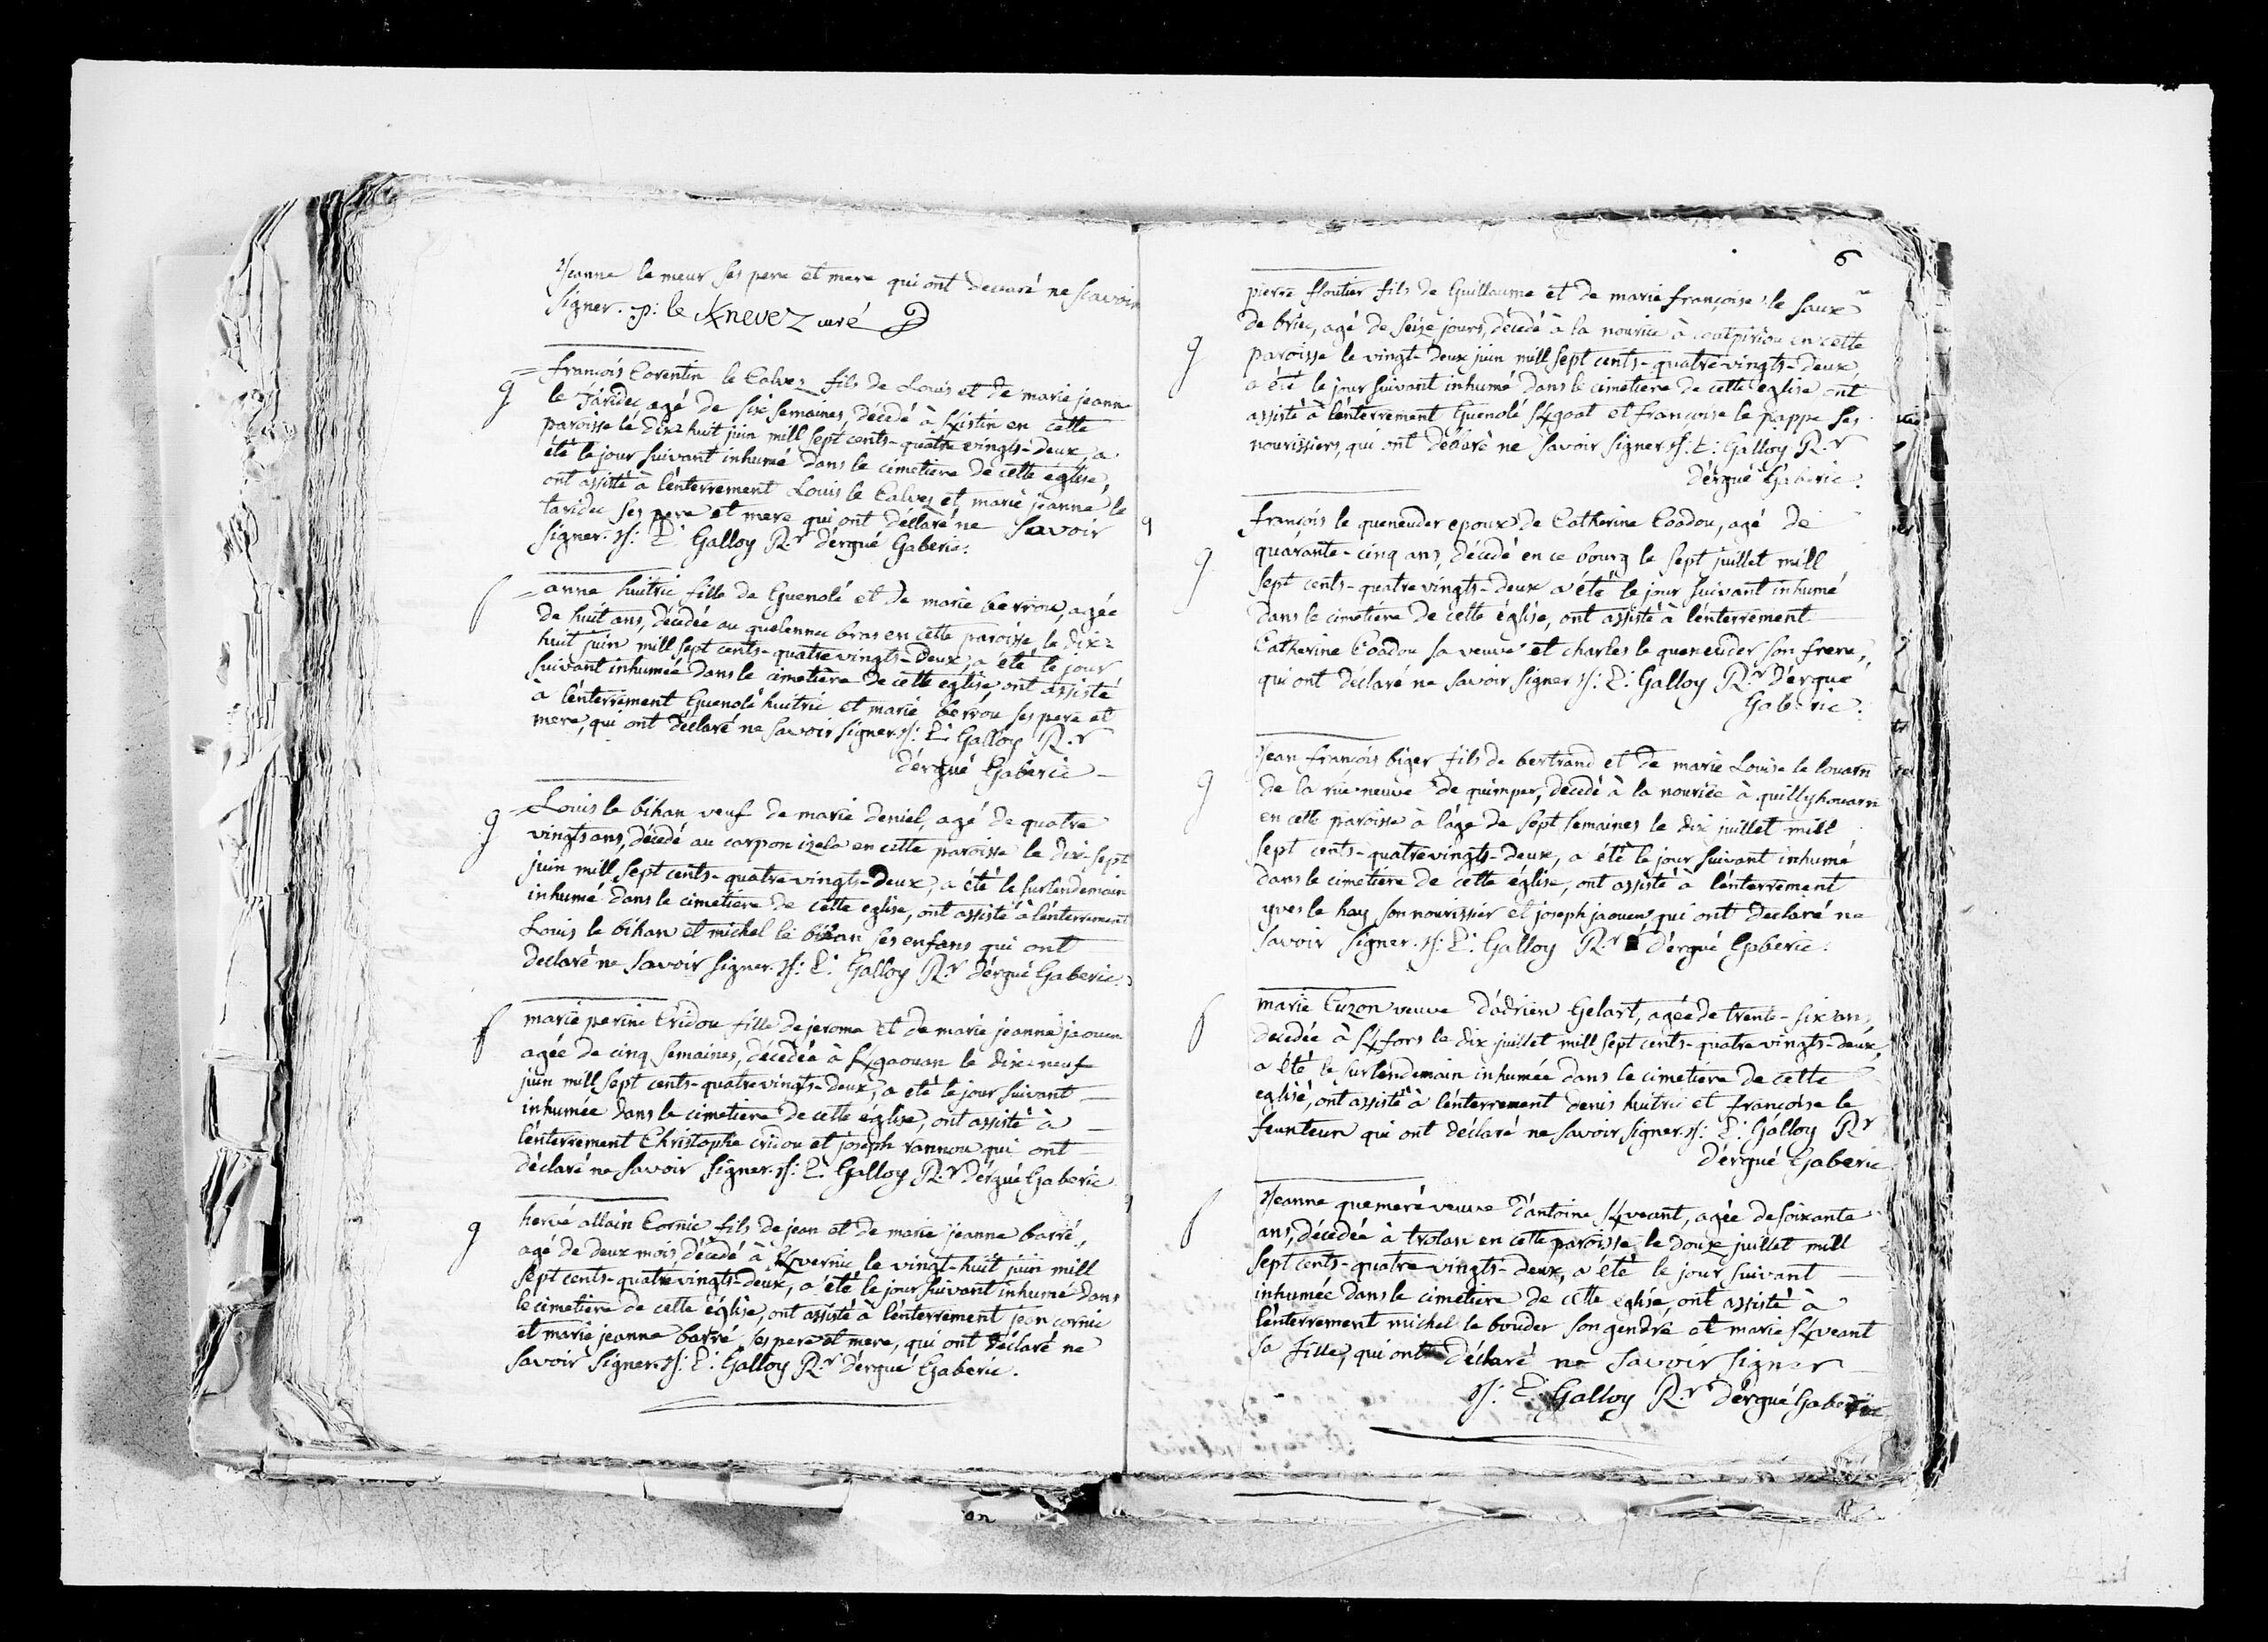 Jeanne le meur ses pere et mere qui ont declaré ne scavoir
signer. p: le Knevez curé
françois Corentin le Calvez fils de Louis et de marie jeanne
g le Taridec agé de six semaines, décédé à Kistin en cette
paroisse lé dix-huit juin mill sept cents-quatre vingts-deux, a
été le jour suivant inhumé dans le cimetiere de cette église,
ont assisté à l'énterrement Louis le Calvez et marie jeanne le
taridec ses pere et mere qui ont déclaré ne savoir
signer. J: E: Galloy R.r d'érgué Gaberic.
f anne huitric fille de Guenolé et de marie berrou, agée
de huit ans, décédée au quelennec bras en cette paroisse le dix-
huit juin mill sept cents-quatre vingts-deux, a été le jour
suivant inhumée dans le cimetiere de cette église, ont assisté
à l'énterrement Guenolé huitric et marie berrou ses pere et
mere, qui ont déclaré ne savoir signer. J: E: Galloy R.r
d'érgué Gaberic
g Louis le bihan veuf de marie deniel, agé de quatre
vingts ans, décédé au carpon izela en cette paroisse le dix-sept
juin mill sept cents-quatre vingts-deux, a été le surlendemain
inhumé dans le cimetiere de cette eglise, ont assisté à l'énterrement
Louis le bihan et michel le bihan ses enfans qui ont
declaré ne savoir signer. J: E: Galloy R.r d'érgué Gaberic.
f marie perine Cridou fille de jerome et de marie jeanne jaouen
agée de cinq semaines, décédée à Kgaouan le dix-neuf
juin mill sept cents-quatre vingts-deux, a été le jour suivant
inhumée dans le cimetiere de cette église, ont assisté à
l'énterrement Christophe cridou et joseph rannou qui ont
déclaré ne savoir signer. J: E: Galloy R.r d'érgué Gaberic
g hervé allain Cornic fils de jean et de marie jeanne barré,
agé de deux mois, décédé à Kvernic le vingt-huit juin mill
sept cents-quatre vingts-deux, a été le jour suivant inhumé dans
le cimetiere de cette église, ont assisté à l'énterrement jean cornic
et marie jeanne barré ses pere et mere, qui ont déclaré ne
savoir signer. J: E: Galloy R.r d'érgué Gaberic.
6
pierre floutier fils de Guillaume et de marie françoise le saux
de briec, agé de seize jours, décédé à la nourice à coatpiriou en cette
g paroisse le vingt-deux juin mill sept cents-quatre vingts-deux,
a été le jour suivant inhumé dans le cimetiere de cette eglise ont
assisté à l'énterrement Guenolé Kgoat et françoise le pappe ses
nourissiers, qui ont déclaré ne savoir signer. J: E: Galloy R.r
d'érgué Gaberic.
françois le queneuder epoux de Catherine Coadou, agé de
g quarante-cinq ans, décédé en ce bourg le sept juillet mill
sept cents-quatre vingts-deux a été le jour suivant inhumé
dans le cimetiere de cette église, ont assisté à l'énterrement
Catherine Coadou sa veuve et charles le queneuder son frere,
qui ont déclaré ne savoir signer. J: E: Galloy R.r d'érgué
Gaberic.
Jean françois biger fils de bertrand et de marie Louise le louarn
g de la rüe neuve de quimper, décédé à la nourice à quillyhouarn
en cette paroisse à l'áge de sept semaines le dix juillet mill
sept cents-quatre vingts-deux, a été le jour suivant inhumé
dans le cimetiere de cette église, ont assisté à l'énterrement
yves le hay son nourissier et joseph jaouen qui ont declaré ne
savoir signer. J: E: Galloy R.r d'érgué Gaberic.
marie Cuzon veuve d'ádrien Gelart, agée de trente-six ans,
f decedée à Kfors le dix juillet mill sept cents-quatre vingts-deux,
a été le surlendemain inhumée dans le cimetiere de cette
eglise, ont assisté à l'énterrement denis huitric et françoise le
feunteun qui ont déclaré ne savoir signer. J: E: Galloy R.r
d'érgué Gaberic
Jeanne quemeré veuve d'ántoine Kveant, agée de soixante
f ans, décédée à trolan en cette paroisse le douze juillet mill
sept cents-quatre vingts-deux, a été le jour suivant
inhumée dans le cimetiere de cette eglise, ont assisté à
l'énterrement michel le bouder son gendre et marie Kveant
sa fille, qui ont déclaré ne savoir signer
J: E: Galloy R.r d'érgué Gaberic